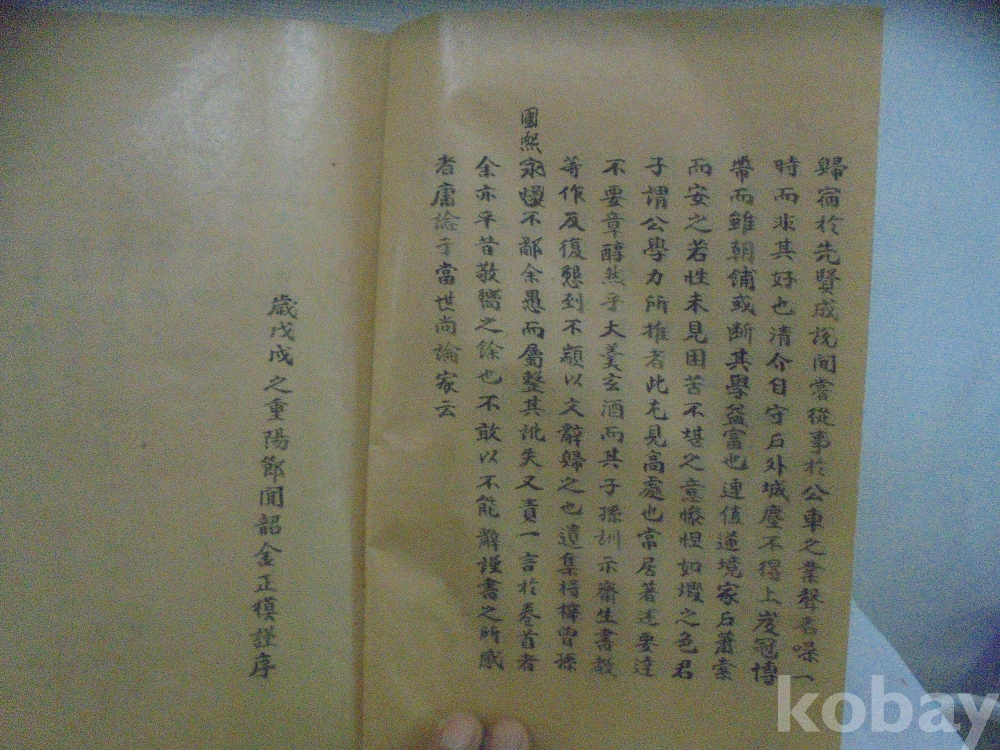 歸宿於先賢成說間嘗從事於公車之業聲香噪一
時而非其好也清介自守石外城塵不得上岌冠博
帶而雖朝餔或断其學益富也連值逆境家石蕭索
而安之若性未見困苦不堪之意慘怛如燬之色君
子謂公學力所推者此尤見高處也常居著述要達
不要章醇然乎大羹玄酒而其子孫訓示齋生書教
等作反復懇到不顓以文辭歸之也遺集将梓曾孫
國熙永不鄙余愚而屬整其訛失又責一言於卷首者
余亦平昔敬嚮之餘也不敢以不能辭謹書之所感
者庸諗于當世尚論家云
歲戊戌之重陽節聞韶金正模謹序
kobay